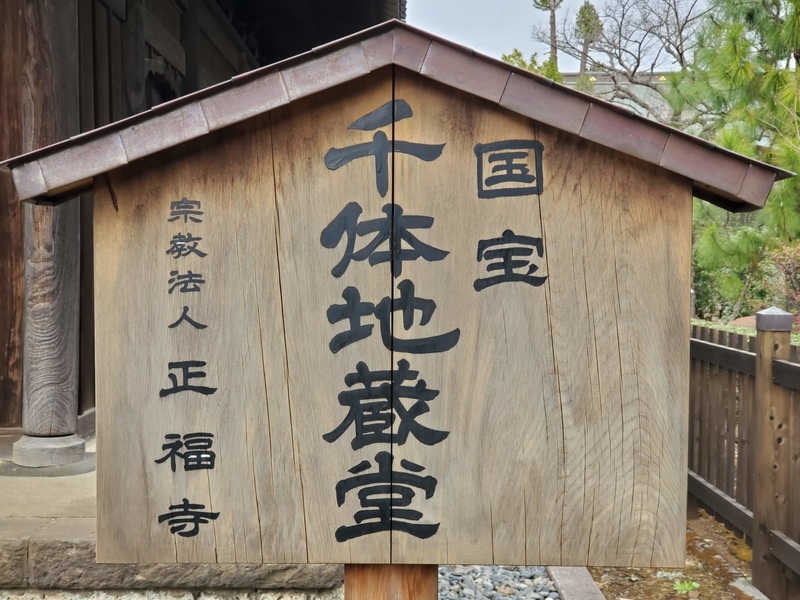 国宝
千体地蔵堂
宗教法人 正福寺